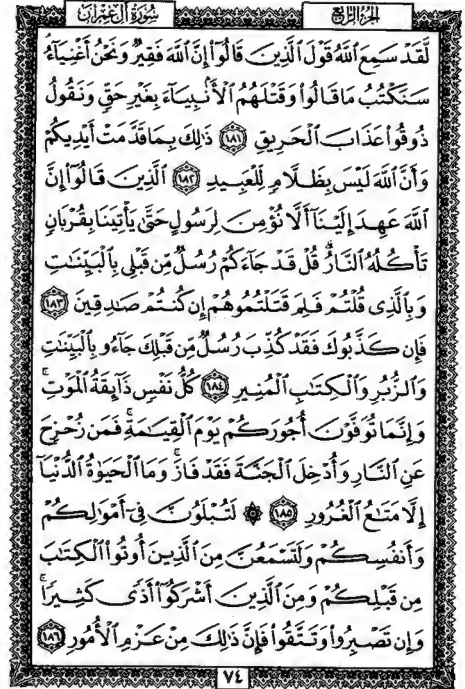 سُورَةُ آلِ عِمْرَان
الجُزْءُ الرَّابِعُ
لَّقَدْ سَمِعَ اللَّهُ قَوْلَ الَّذِينَ قَالُوٓا۟ إِنَّ اللَّهَ فَقِيرٌ وَنَحْنُ أَغْنِيَآءُ
سَنَكْتُبُ مَا قَالُوا۟ وَقَتْلَهُمُ الْأَنۢبِيَآءَ بِغَيْرِ حَقٍّ وَنَقُولُ
ذُوقُوا۟ عَذَابَ الْحَرِيقِ ﴿١٨١﴾ ذَٰلِكَ بِمَا قَدَّمَتْ أَيْدِيكُمْ
وَأَنَّ اللَّهَ لَيْسَ بِظَلَّامٍ لِّلْعَبِيدِ ﴿١٨٢﴾ الَّذِينَ قَالُوٓا۟ إِنَّ
اللَّهَ عَهِدَ إِلَيْنَآ أَلَّا نُؤْمِنَ لِرَسُولٍ حَتَّىٰ يَأْتِيَنَا بِقُرْبَانٍ
تَأْكُلُهُ النَّارُ ۗ قُلْ قَدْ جَآءَكُمْ رُسُلٌ مِّن قَبْلِى بِالْبَيِّنَٰتِ
وَبِالَّذِى قُلْتُمْ فَلِمَ قَتَلْتُمُوهُمْ إِن كُنتُمْ صَٰدِقِينَ ﴿١٨٣﴾
فَإِن كَذَّبُوكَ فَقَدْ كُذِّبَ رُسُلٌ مِّن قَبْلِكَ جَآءُو بِالْبَيِّنَٰتِ
وَالزُّبُرِ وَالْكِتَٰبِ الْمُنِيرِ ﴿١٨٤﴾ كُلُّ نَفْسٍ ذَآئِقَةُ الْمَوْتِ ۗ
وَإِنَّمَا تُوَفَّوْنَ أُجُورَكُمْ يَوْمَ الْقِيَٰمَةِ ۖ فَمَن زُحْزِحَ
عَنِ النَّارِ وَأُدْخِلَ الْجَنَّةَ فَقَدْ فَازَ ۗ وَمَا الْحَيَوٰةُ الدُّنْيَآ
إِلَّا مَتَٰعُ الْغُرُورِ ﴿١٨٥﴾ ۞ لَتُبْلَوُنَّ فِىٓ أَمْوَٰلِكُمْ
وَأَنفُسِكُمْ وَلَتَسْمَعُنَّ مِنَ الَّذِينَ أُوتُوا۟ الْكِتَٰبَ
مِن قَبْلِكُمْ وَمِنَ الَّذِينَ أَشْرَكُوٓا۟ أَذًى كَثِيرًا ۚ
وَإِن تَصْبِرُوا۟ وَتَتَّقُوا۟ فَإِنَّ ذَٰلِكَ مِنْ عَزْمِ الْأُمُورِ ﴿١٨٦﴾
٧٤